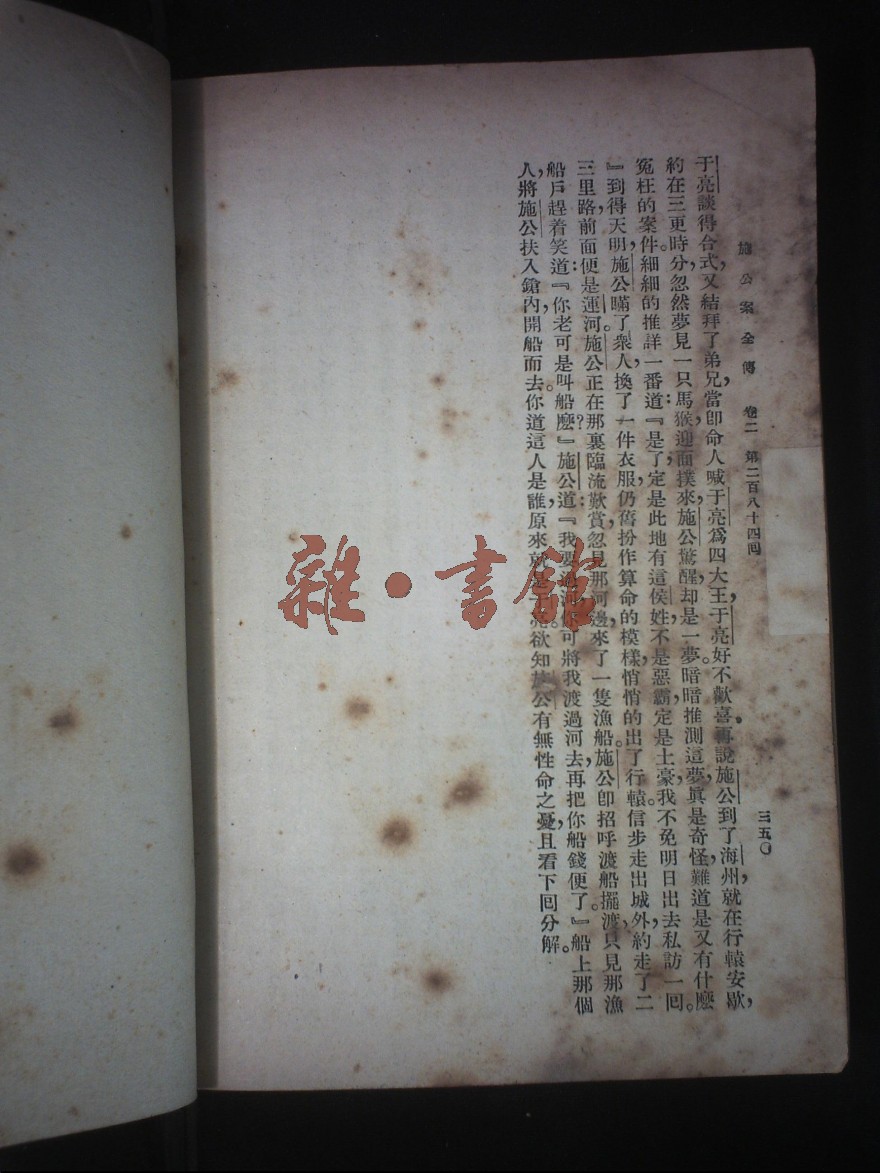 施公案全傳 卷二 第二百八十四回 三五〇
于亮談得合式,又結拜了弟兄,當卽命人喊于亮爲四大王,于亮好不歡喜。再說施公到了海州,就在行轅安歇,
約在三更時分,忽然夢見一只馬猴,迎面撲來,施公驚醒,却是一夢。暗暗推測這夢,眞是奇怪,難道是又有什麼
冤枉的案件。細細的推詳一番道:『是了,定是此地有這侯姓,不是惡霸,定是土豪,我不免明日出去私訪一回。
』到得天明,施公瞞了衆人,換了一件衣服,仍舊扮作算命的模樣,悄悄的出了行轅。信步走出城外,約走了二
三里路,前面便是運河。施公正在那裏臨流歎賞,忽見那河邊來了一隻漁船。施公卽招呼渡船擺渡,只見那漁
船戶趕着笑道:『你老可是叫船麼?』施公道:『我要過河,你可將我渡過河去,再把你船錢便了。』船上那個
人,將施公扶入艙內,開船而去。你道這人是誰,原來就是于亮。欲知施公有無性命之憂,且看下回分解。
雜·書館